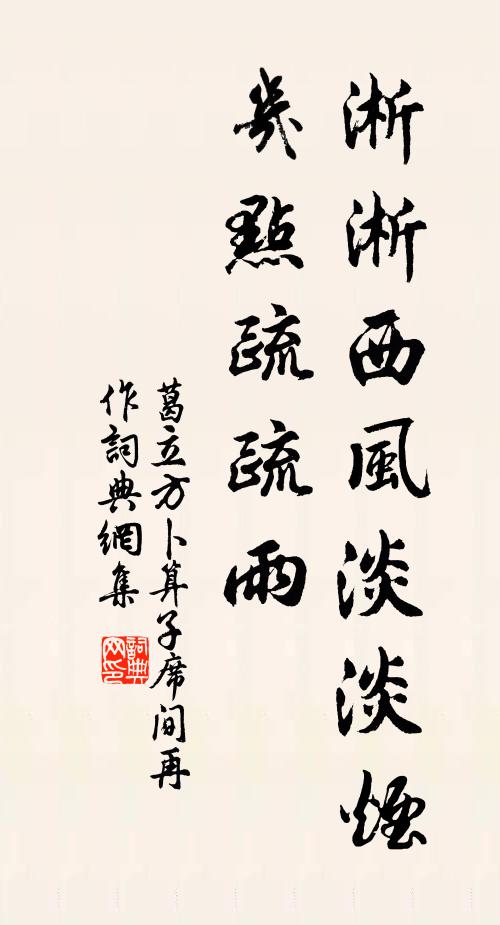 淅淅西風淡淡煙
幾點疏疏雨
葛立方卜算子席间再
作詞典網集
詞典
网印